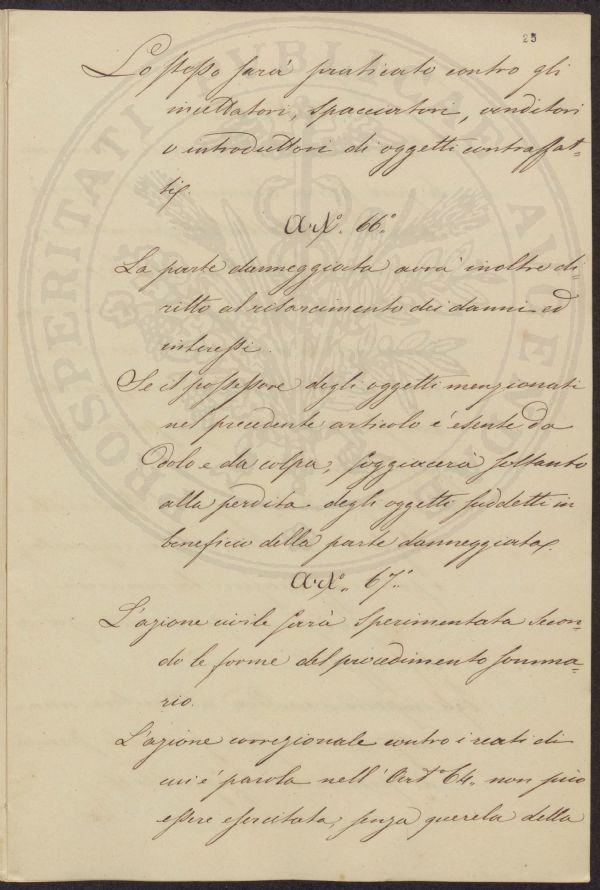 25
Lo stesso sarà praticato contro gli
incettatori, spacciatori, venditori
o introduttori di oggetti contraffat-
ti.
Art.° 66.°
La parte danneggiata avrà inoltre di-
ritto al risarcimento dei danni ed
interessi.
Se il possessore degli oggetti menzionati
nel precedente articolo è esente da
dolo e da colpa, soggiacerà soltanto
alla perdita degli oggetti suddetti in
beneficio della parte danneggiata.
Art.° 67.°
L'azione civile sarà sperimentata secon-
do le forme del procedimento somma-
rio.
L'azione correzionale contro i reati di
cui è parola nell'Art.° 64. non può
essere esercitata, senza querela della
PROSPERITATI PVBLICAE AVGENDAE